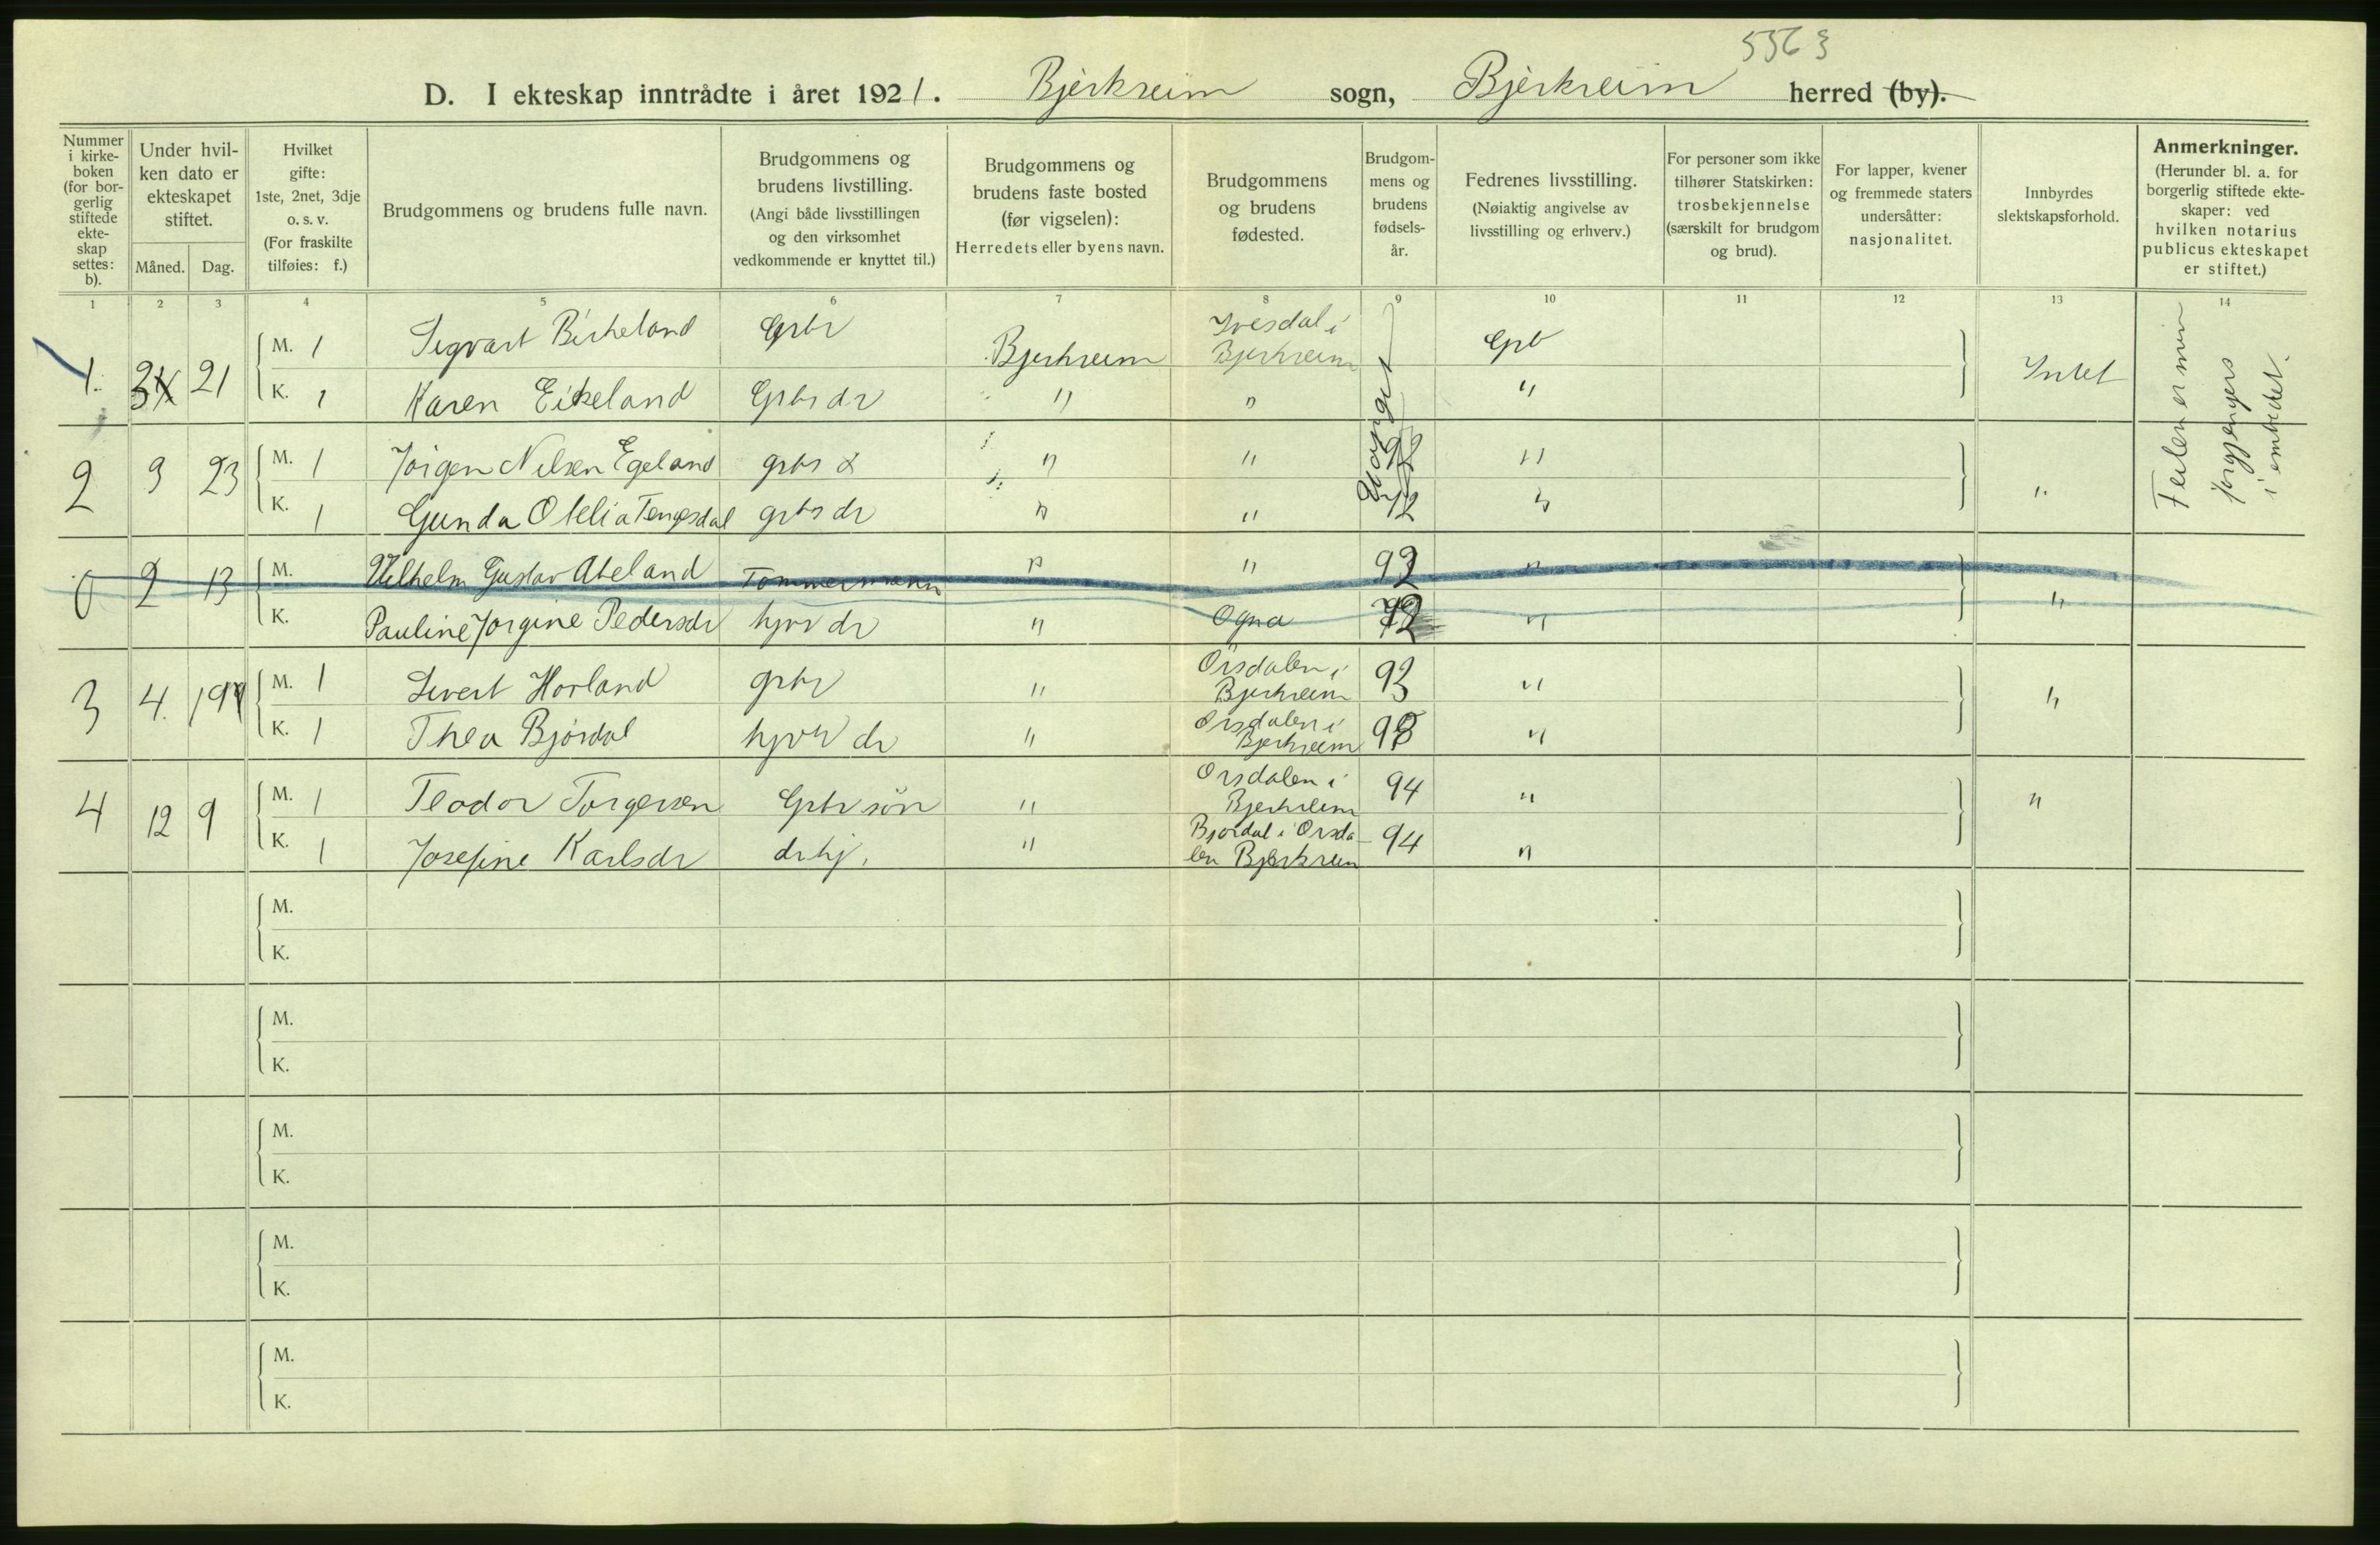 5563
D. I ekteskap inntrådte i året 1921. Bjerkreim sogn, Bjerkreim herred (by).
Nummer i kirkeboken (for borgerlig stiftede ekteskap settes: b).
Under hvilken dato er ekteskapet stiftet.
Måned. Dag.
Hvilket gifte: 1ste, 2net, 3dje o. s. v. (For fraskilte tilføies: f.)
Brudgommens og brudens fulle navn.
Brudgommens og brudens livstilling. (Angi både livsstillingen og den virksomhet vedkommende er knyttet til.)
Brudgommens og brudens faste bosted (før vigselen): Herredets eller byens navn.
Brudgommens og brudens fødested.
Brudgommens og brudens fødselsår.
Fedrenes livsstilling. (Nøiaktig angivelse av livsstilling og erhverv.)
For personer som ikke tilhører Statskirken: trosbekjennelse (særskilt for brudgom og brud).
For lapper, kvener og fremmede staters undersåtter: nasjonalitet.
Innbyrdes slektskapsforhold.
Anmerkninger. (Herunder bl. a. for borgerlig stiftede ekteskaper: ved hvilken notarius publicus ekteskapet er stiftet.)
1 2 3 4 5 6 7 8 9 10 11 12 13 14
1. 21 M. 1 Sigvart Birkeland Grbr Bjerkreim Ivesdal i Bjerkreim Grb Intet
K. 1 Karen Eikeland Grbr dr " " "
Feilen er min forgjengers i embedet.
2 3 23 M. 1 Jørgen Nilsen Egeland grbr " " "
K. 1 Gunda Otelia Tengesdal grbr dr " " " "
0 2 13 M. Vilhelm Gustav Abeland Tømmermann " " 92 "
K. Pauline Jorgine Pedersdr hjvr dr " Ogna " "
3 4. 19 M. 1 Sivert Horland grbr " Ørsdalen i Bjerkreim 93 " "
K. 1 Thea Bjørdal hjvr dr " Ørsdalen i Bjerkreim 98 "
4 12 9 M. 1 Teodor Torgersen Grbr søn " Ørsdalen i Bjerkreim 94 " "
K. 1 Josefine Karlsdr dr hj. " Bjørdal i Ørsdalen Bjerkreim 94 "
M.
K.
M.
K.
M.
K.
M.
K.
M.
K.